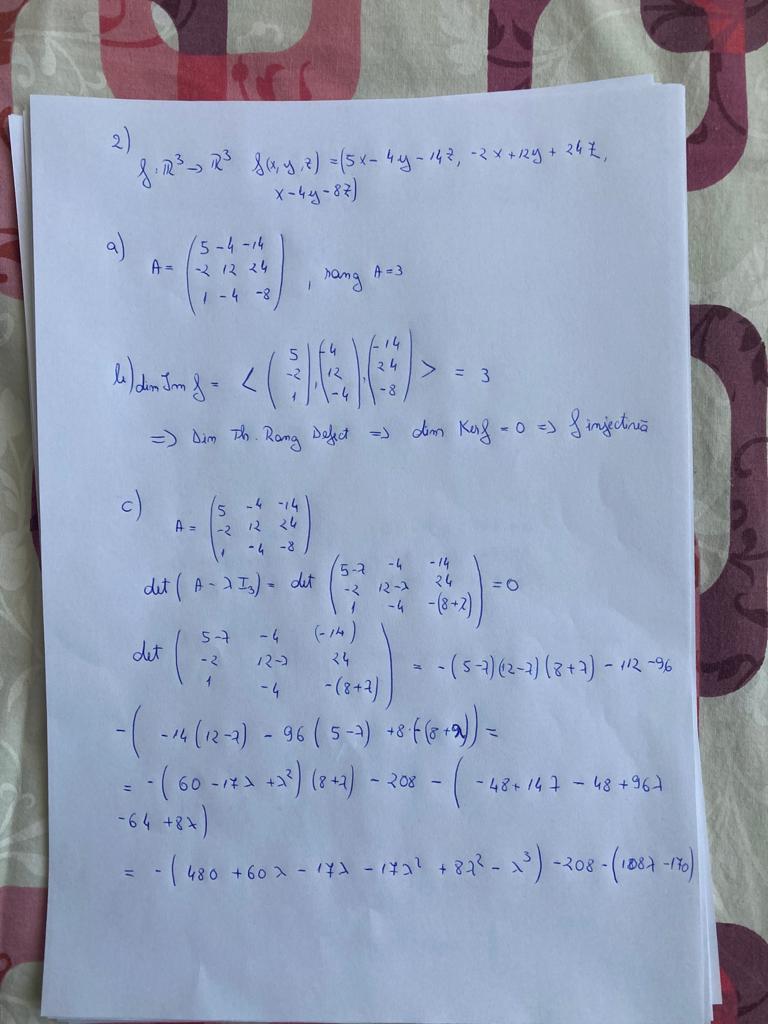 2)
f: ℝ³ → ℝ³ f(x, y, z) = (5x - 4y - 14z, -2x + 12y + 24z,
x - 4y - 8z)
a)
A = ( 5 -4 -14
-2 12 24
1 -4 -8 ) , rang A = 3
b) dim Im f = < ( 5 -2 1 ), ( -4 12 -4 ), ( -14 24 -8 ) > = 3
=> Din Th. Rang Defect => dim Ker f = 0 => f injectivă
c)
A = ( 5 -4 -14
-2 12 24
1 -4 -8 )
det ( A - λ I₃ ) = det ( 5-λ -4 -14
-2 12-λ 24
1 -4 -(8+λ) ) = 0
det ( 5-λ -4 (-14)
-2 12-λ 24
1 -4 -(8+λ) ) = -(5-λ)(12-λ)(8+λ) - 112 - 96
-( -14(12-λ) - 96(5-λ) + 8·(-(8+λ)) =
= -(60 - 17λ + λ²)(8+λ) - 208 - ( -48 + 14λ - 48 + 96λ
-64 + 8λ)
= -( 480 + 60λ - 17λ - 17λ² + 8λ² - λ³ ) - 208 - (108λ - 170)